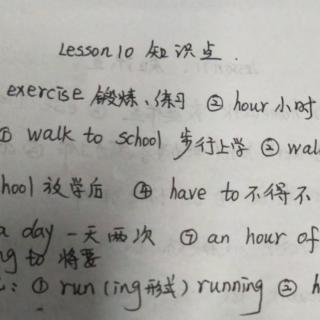 Lesson 10 知识点.
exercise 锻炼、练习 ② hour 小时
① walk to school 步行上学 ②
hool 放学后 ④ have to 不得不
a day 一天两次 ⑦ an hour of
ng to 将要
: ① run (ing形式) running ②